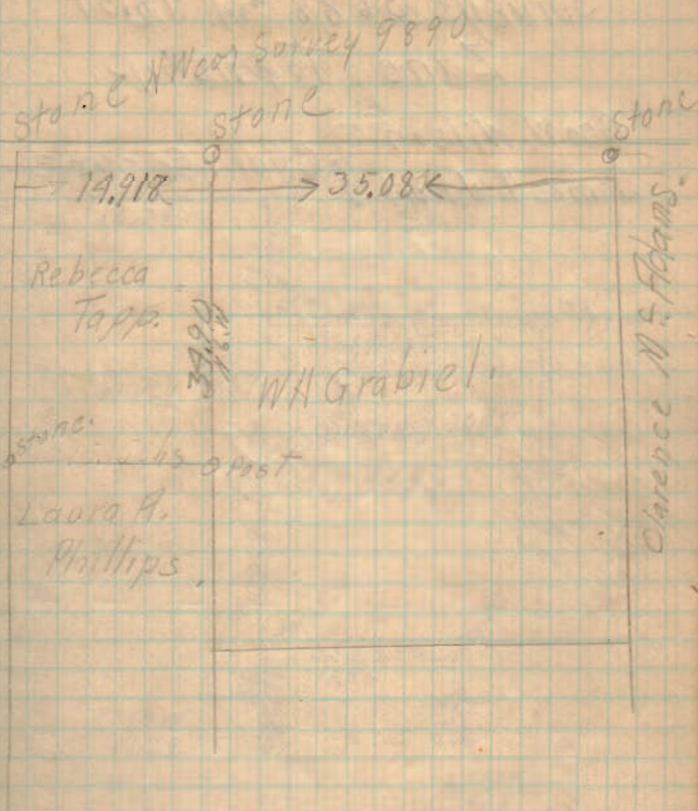 NW cor Survey 9890
Stone Stone Stone
14.91 35.08
Rebecca
Tapp.
WH Grabiel.
Clarence McAdams.
Stone.
Post
Laura A.
Phillips.